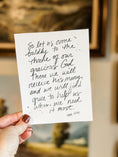 So let us come
boldly to the
throne of our
gracious God.
There we will
receive his mercy,
and we will find
grace to help us
when we need
it most.